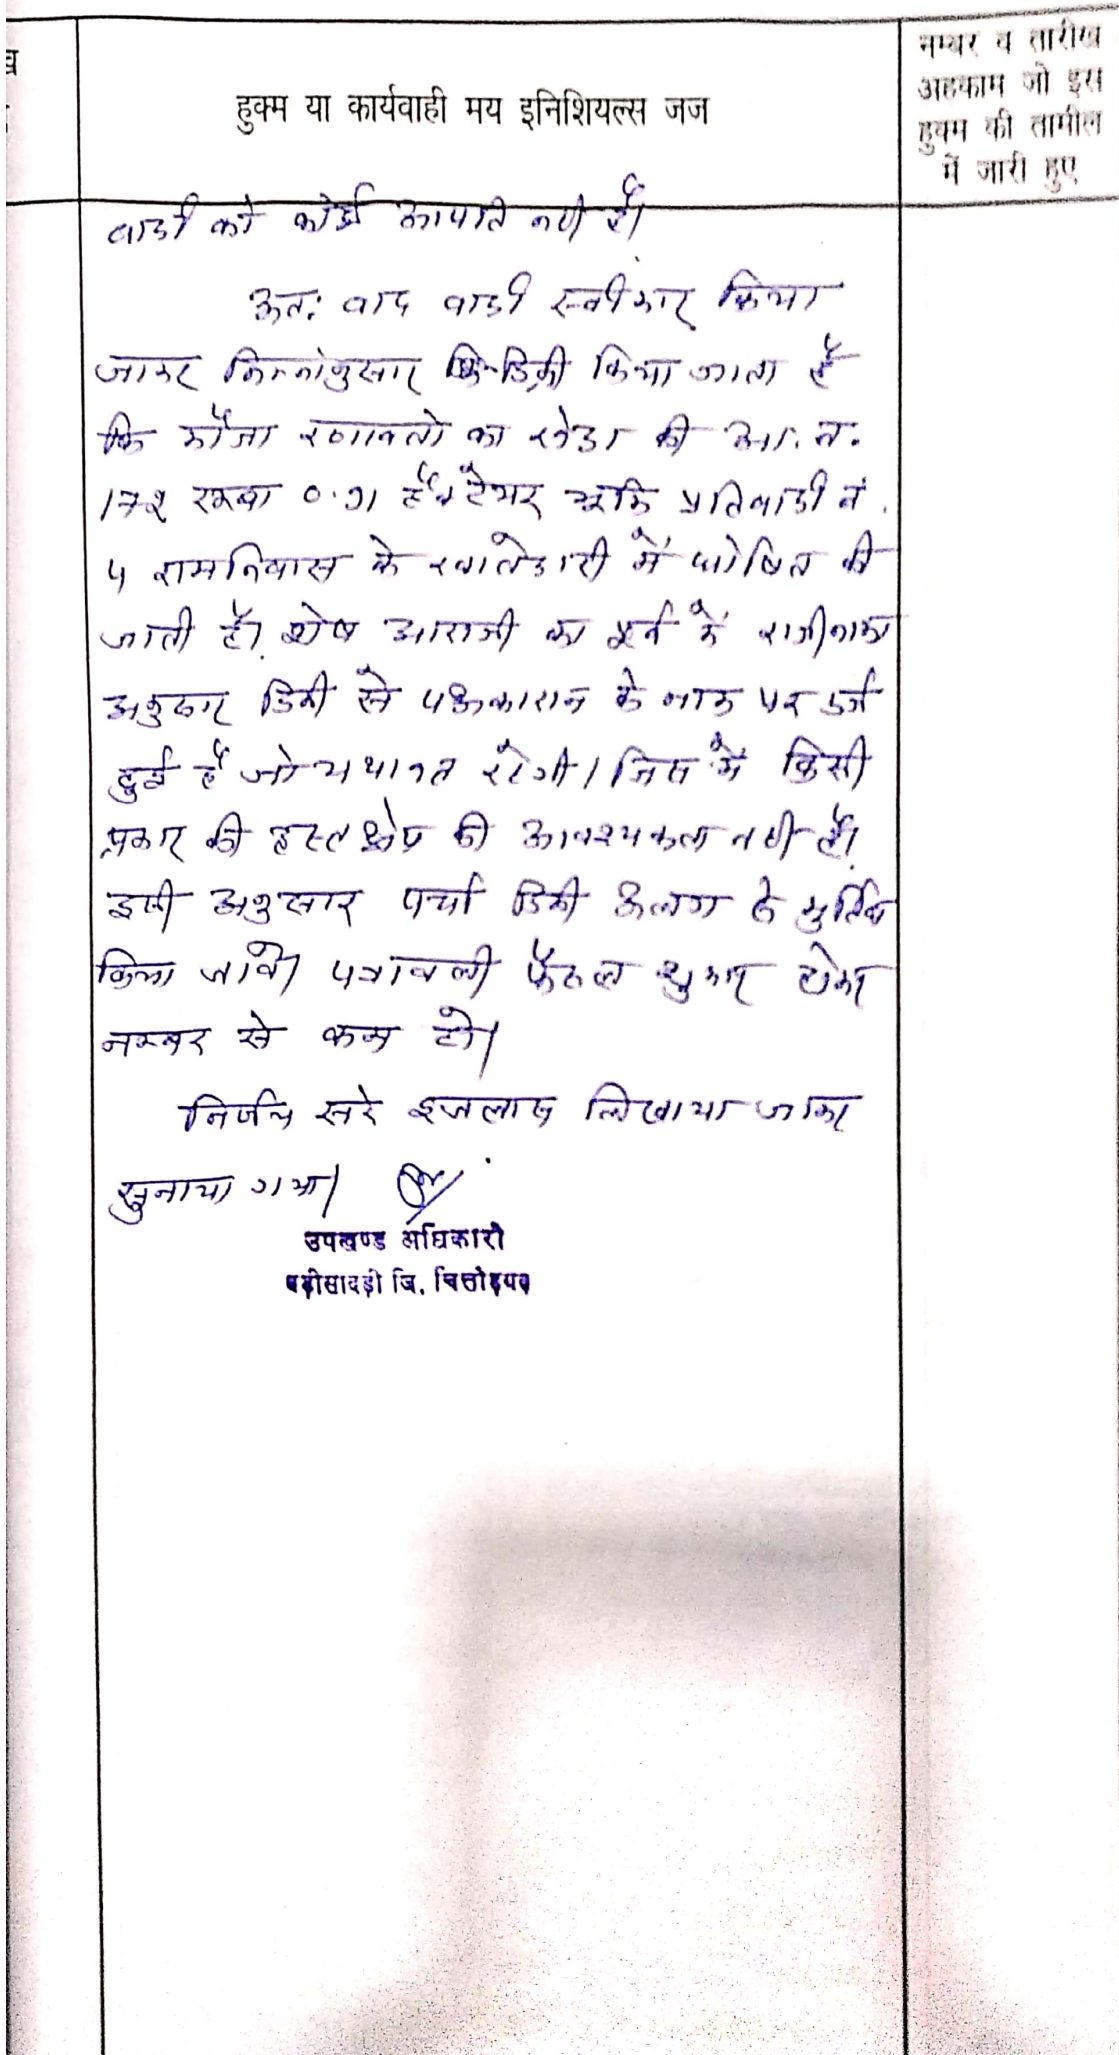 ख
हुक्म या कार्यवाही मय इनिशियल्स जज
नम्बर व तारीख
अहकाम जो इस
हुक्म की तामील
में जारी हुए
वादी को कोई आपति नही है।
अत: वाद वादी स्वीकार किया
जाकर निम्नोनुसार डिक्री किया जाता है
कि मौजा रणावतो का खेडा की आ. न.
172 रकबा 0.71 हैक्टेयर भूमि प्रतिवादी नं.
5 रामनिवास के खातेदारी में घोषित की
जाती है। शेष आराजी का पूर्व में राजीनामा
अनुसार डिक्री से पक्षकारान के नाम पर दर्ज
हुई है जो यथावत रहेगी। जिस में किसी
प्रकार की हस्तक्षेप की आवश्यकता नही है।
इसी अनुसार पर्चा डिक्री अलग से मुर्तिब
किया जावे। पत्रावली फैसल शुमार होकर
नम्बर से कम हो।
निर्णय सरे इजलास लिखाया जाकर
सुनाया गया।
उपखण्ड अधिकारी
बड़ीसादड़ी जि. चित्तोड़गढ़